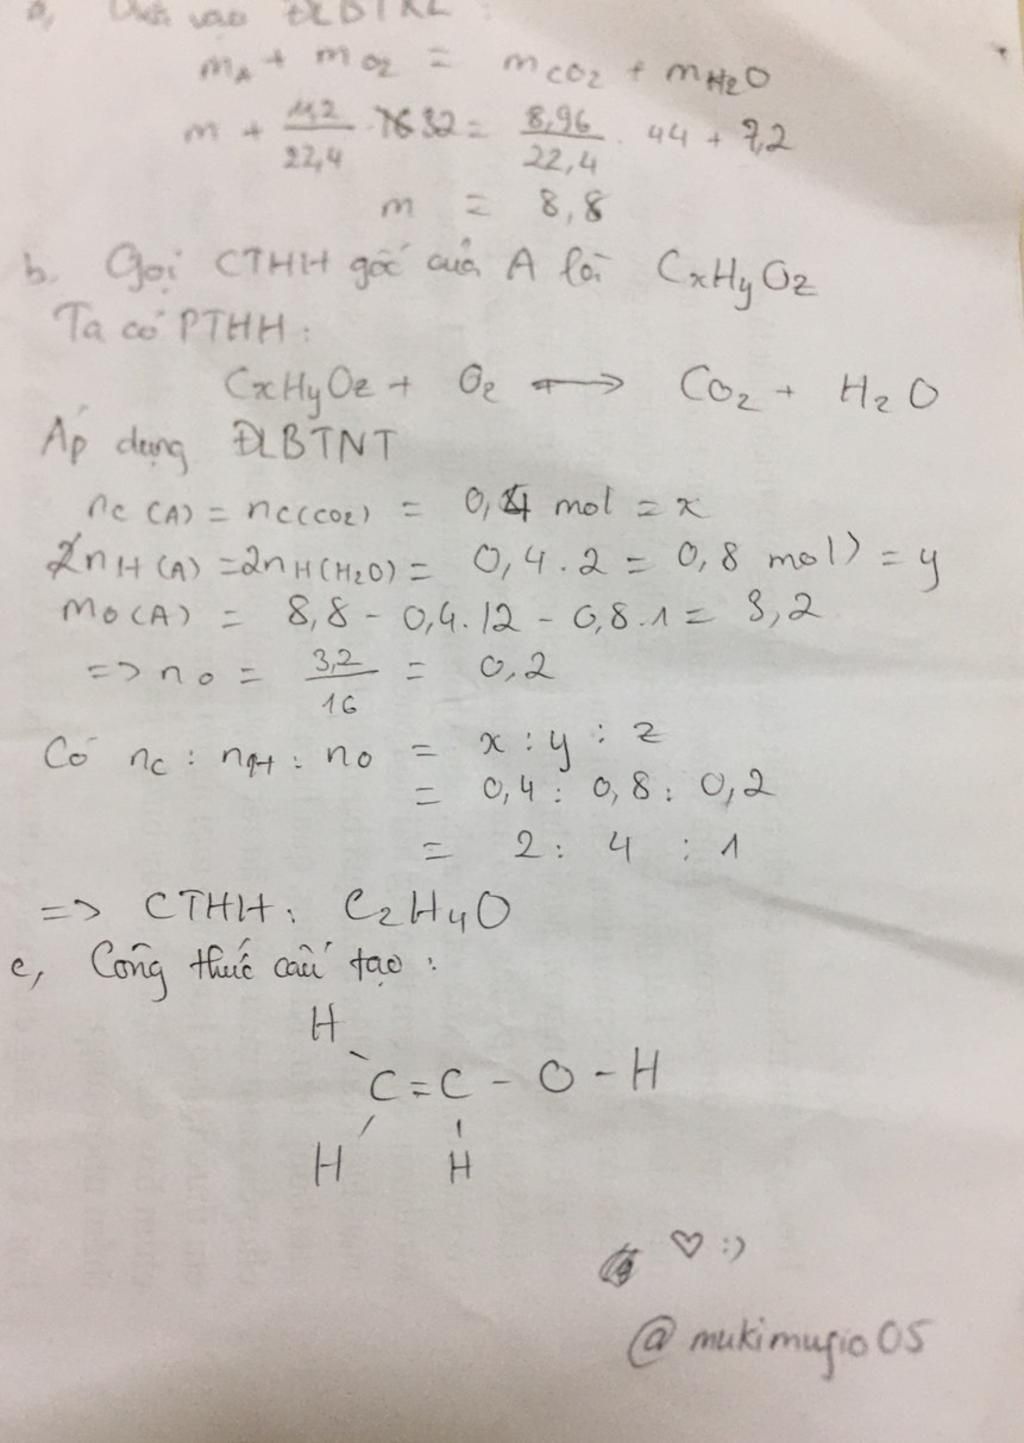 a, Dựa vào ĐLBTKL :
mA + mO2 = mCO2 + mH2O
m + 11,2/22,4 . 32 = 8,96/22,4 . 44 + 7,2
m = 8,8
b. Gọi CTHH gốc của A là CxHyOz
Ta có PTHH :
CxHyOz + O2 → CO2 + H2O
Áp dụng ĐLBTNT
nC (A) = nC(CO2) = 0,4 mol = x
2nH (A) = 2nH(H2O) = 0,4 . 2 = 0,8 mol) = y
mO(A) = 8,8 - 0,4.12 - 0,8.1 = 3,2
=> nO = 3,2/16 = 0,2
Có nC : nH : nO = x : y : z
= 0,4 : 0,8 : 0,2
= 2 : 4 : 1
=> CTHH : C2H4O
c, Công thức cấu tạo :
H
C = C - O - H
H H
♡ :)
@mukimugio05